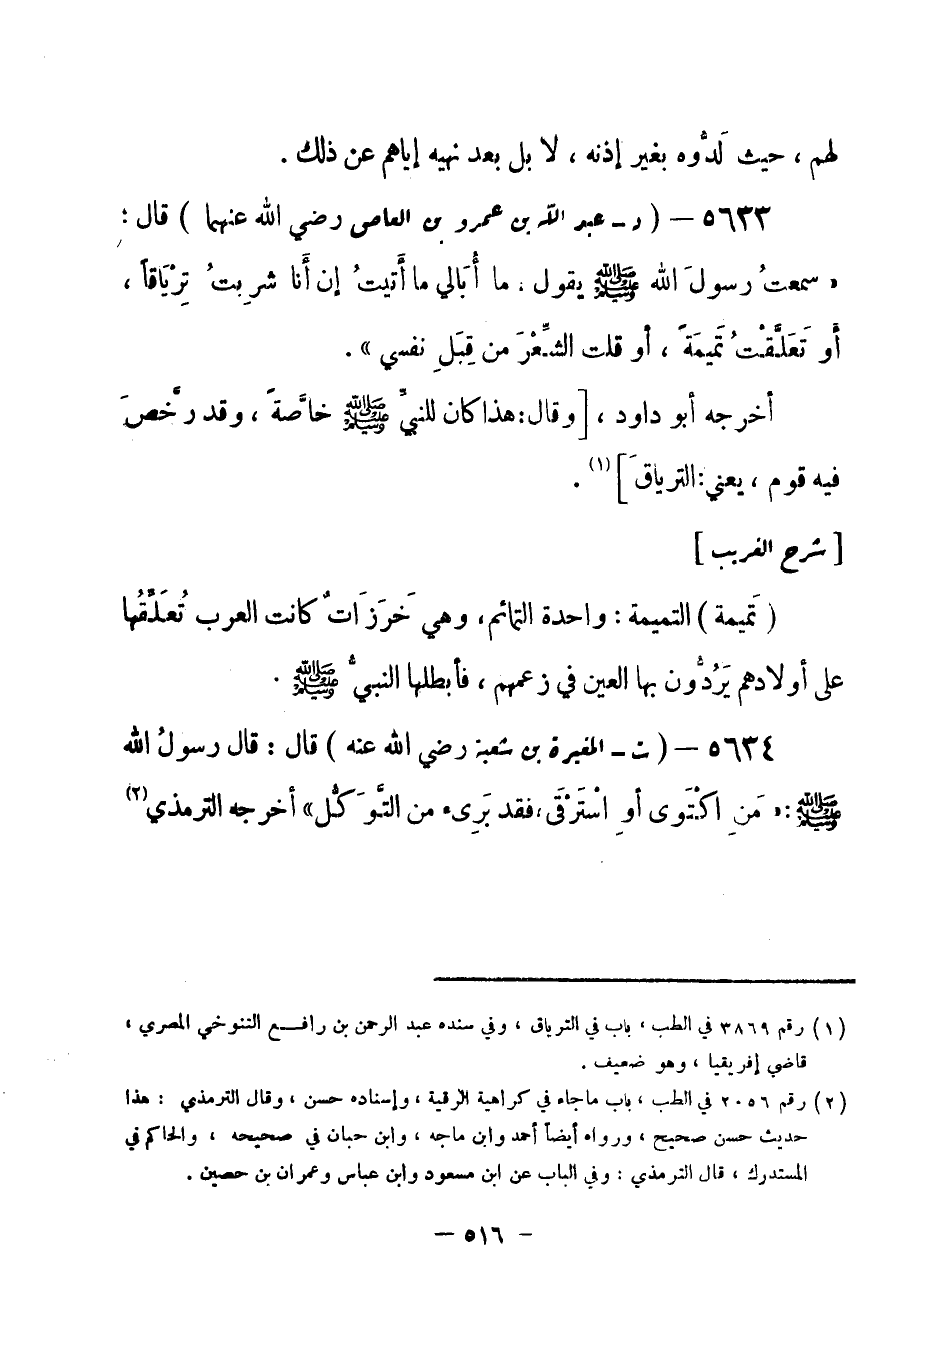 لهم ، حيث لَدُّوه بغير إذنه ، لا بل بعد نهيه إياهم عن ذلك .
٥٦٣٣ – ( د ـ عبد الله بن عمرو بن العاص رضي الله عنهما ) قال :
« سمعتُ رسولَ الله ﷺ يقول : ما أُبَالي ما أَتيتُ إن أَنا شربتُ تِرْيَاقاً ،
أَو تَعَلَّقْتُ تَمِيمَةً ، أو قلت الشِّعْرَ من قِبَلِ نفسي » .
أخرجه أبو داود ، [ وقال : هذا كان للنبيِّ ﷺ خاصَّةً ، وقد رخَّصَ
فيه قوم ، يعني : الترياقَ ] (١) .
[ شرح الغريب ]
( تَميمة ) التميمة : واحدة التمائم ، وهي خَرَزَاتٌ كانت العرب تُعَلِّقُها
على أولادهم يَرُدُّون بها العين في زعمهم ، فأبطلها النبيُّ ﷺ .
٥٦٣٤ – ( ت ـ المغيرة بن شعبة رضي الله عنه ) قال : قال رسولُ الله
ﷺ : « مَنِ اكْتَوى أوِ اسْتَرْقَى ، فقد بَرِىء من التَّوَكُّل » أخرجه الترمذي (٢)
(١) رقم ٣٨٦٩ في الطب ، باب في الترياق ، وفي سنده عبد الرحمن بن رافع التنوخي المصري ،
قاضي إفريقيا ، وهو ضعيف .
(٢) رقم ٢٠٥٦ في الطب ، باب ماجاء في كراهية الرقية ، وإسناده حسن ، وقال الترمذي : هذا
حديث حسن صحيح ، ورواه أيضاً أحمد وابن ماجه ، وابن حبان في صحيحه ، والحاكم في
المستدرك ، قال الترمذي : وفي الباب عن ابن مسعود وابن عباس وعمران بن حصين .
– ٥١٦ –